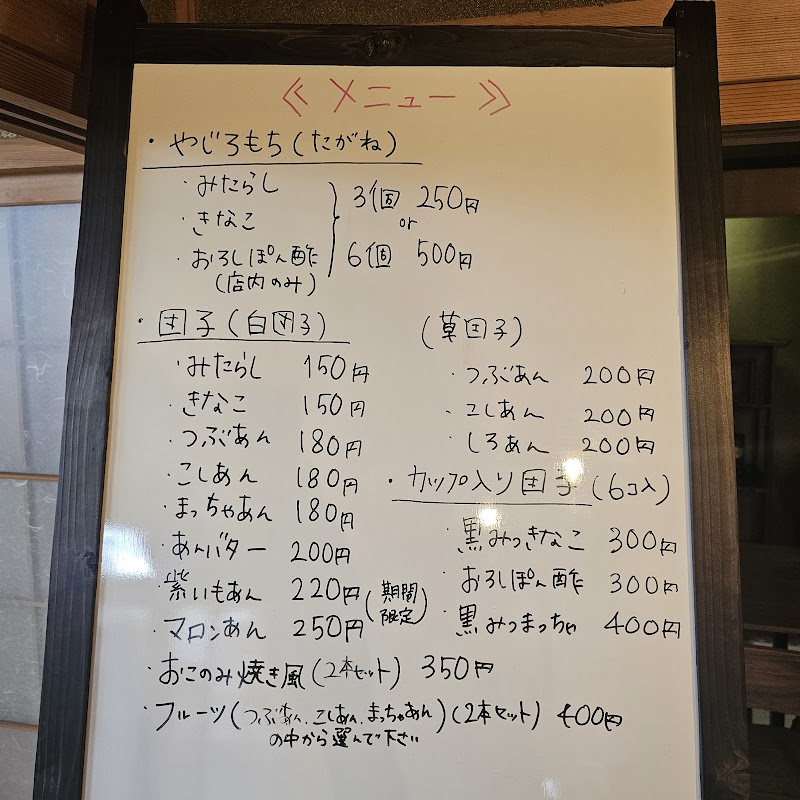 ≪ メニュー ≫
・やじろもち(たがね)
・みたらし
・きなこ
・おろしぽん酢
(店内のみ)
3個 250円
or
6個 500円
・団子(白団子)
・みたらし 150円
・きなこ 150円
・つぶあん 180円
・こしあん 180円
・まっちゃあん 180円
・あんバター 200円
・紫いもあん 220円
・マロンあん 250円
(期間限定)
・おこのみ焼き風(2本セット) 350円
・フルーツ(つぶあん、こしあん、まっちゃあん)(2本セット) 400円
の中から選んで下さい
(草団子)
・つぶあん 200円
・こしあん 200円
・しろあん 200円
・カップ入り団子(6コ入)
・黒みつきなこ 300円
・おろしぽん酢 300円
・黒みつまっちゃ 400円